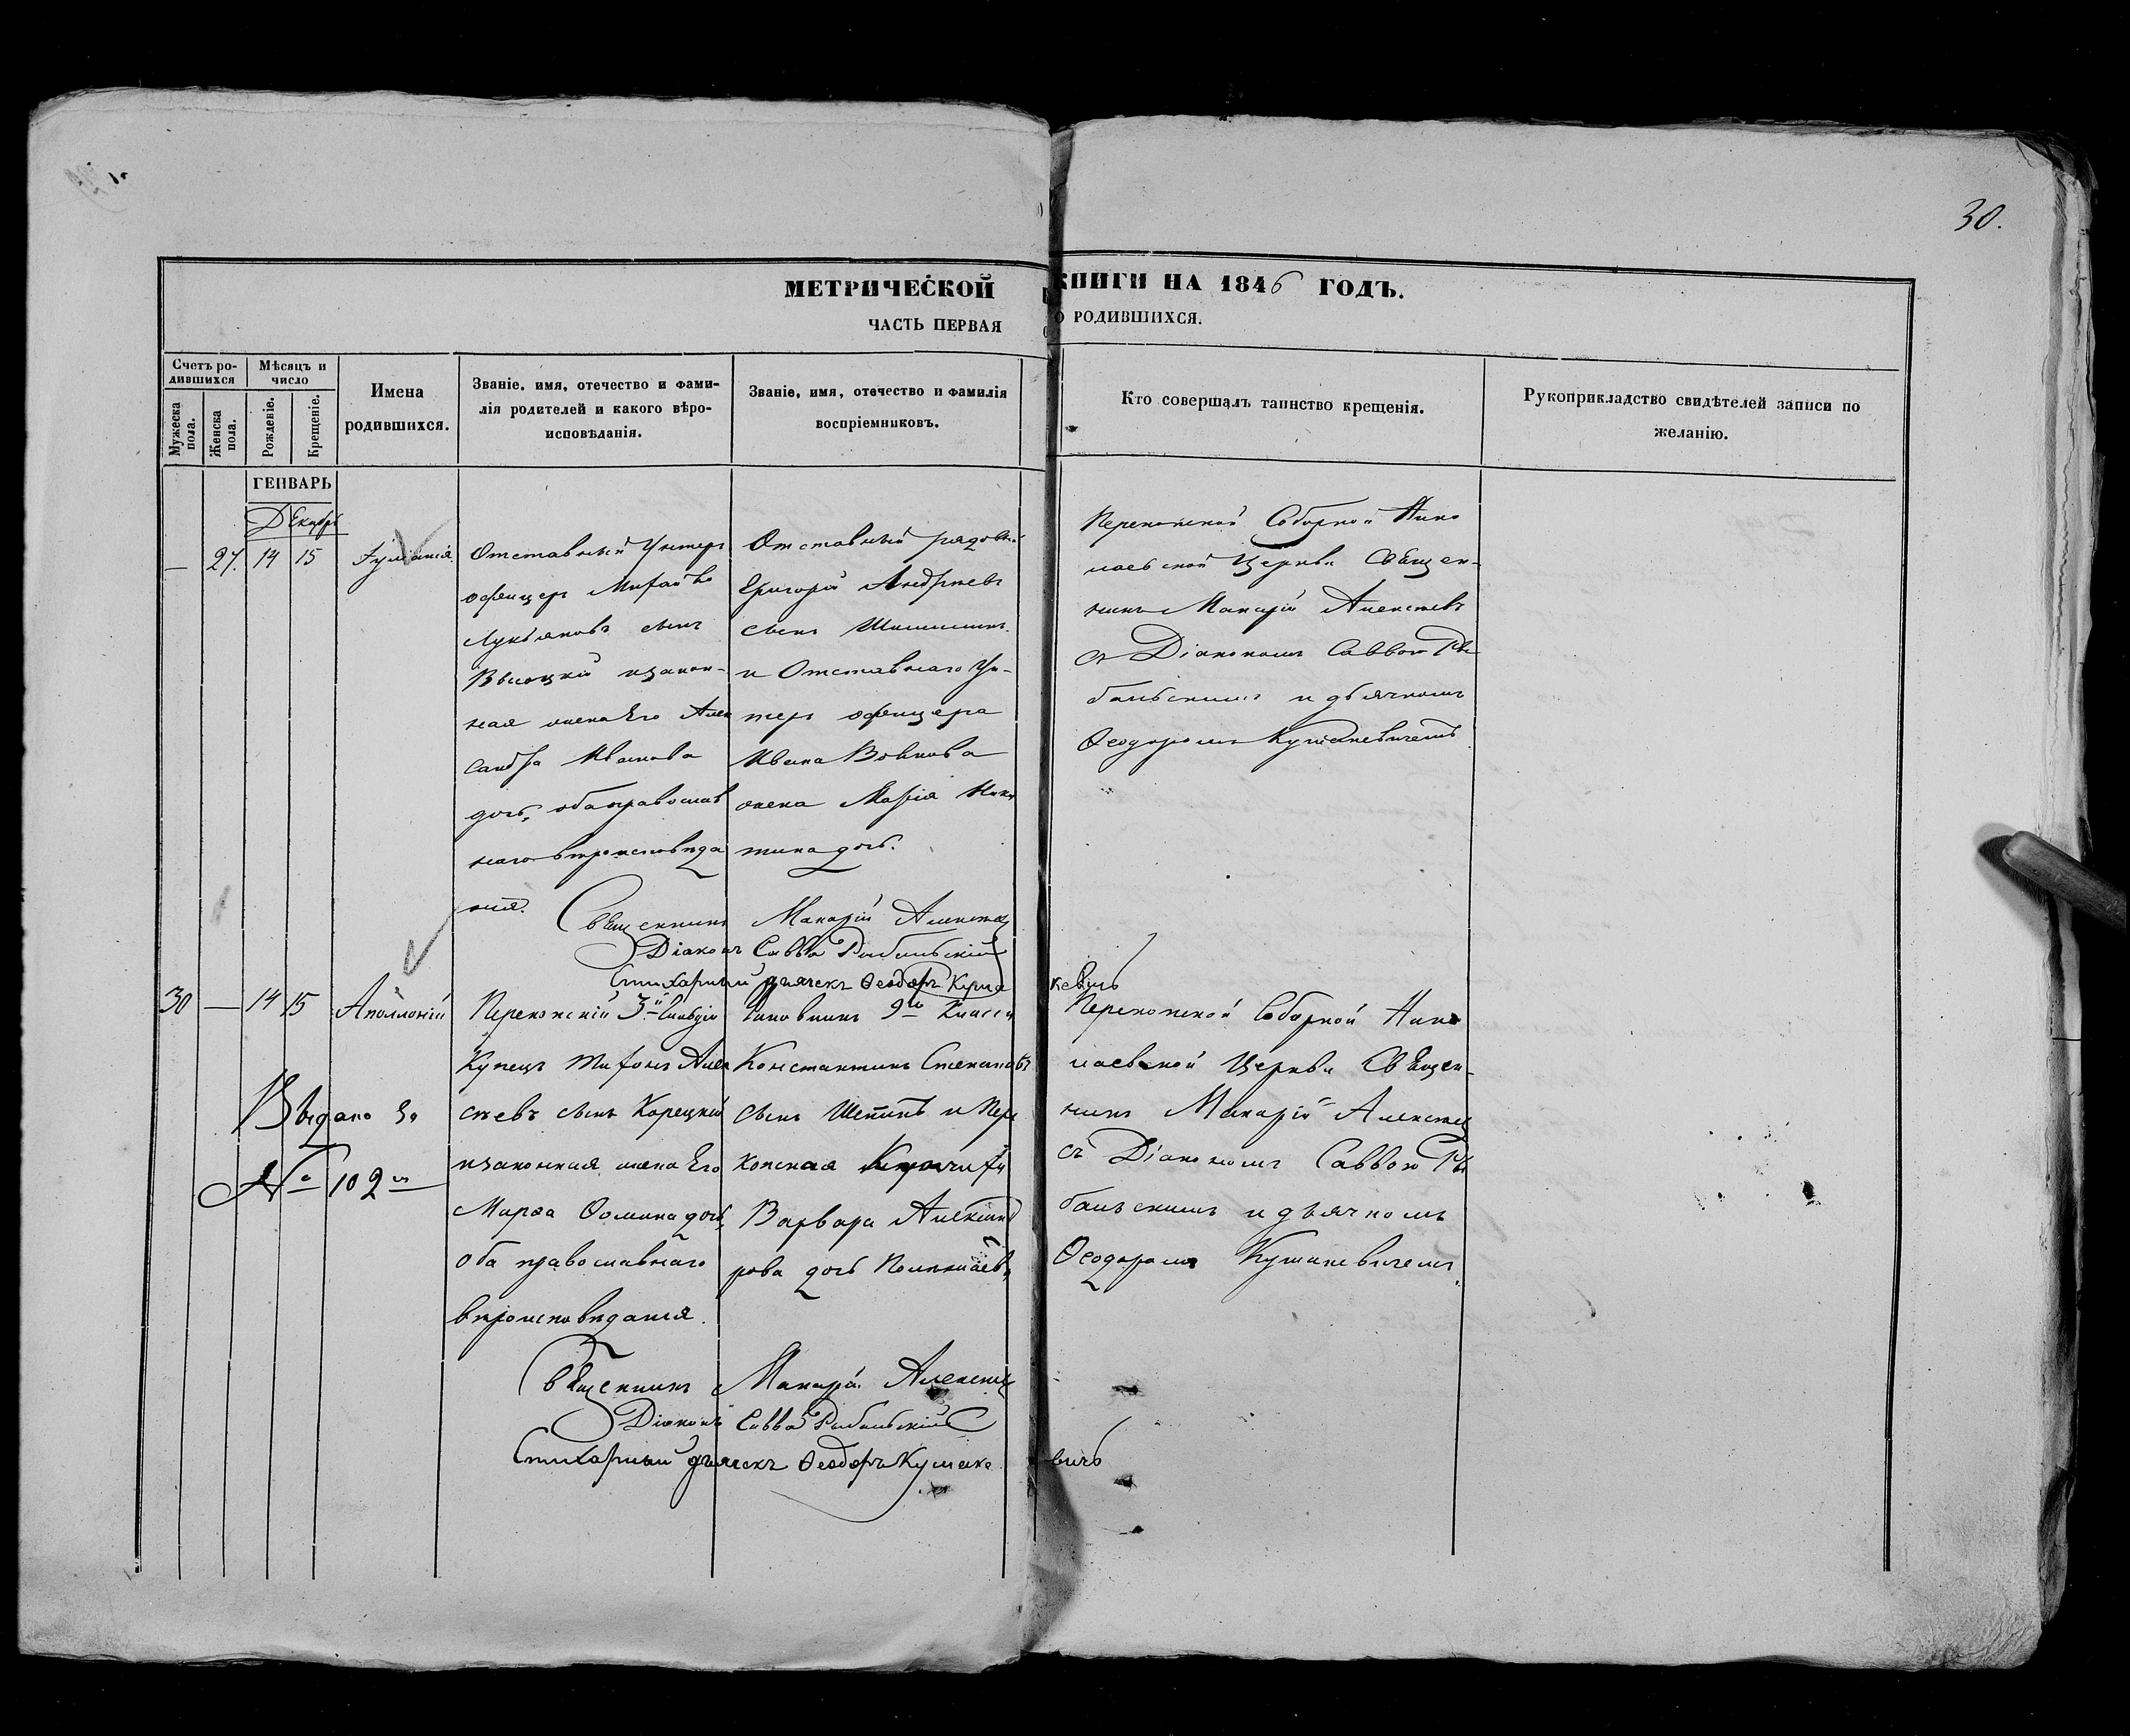 30.
МЕТРИЧЕСКОЙ КНИГИ НА 1846 ГОДЪ.
ЧАСТЬ ПЕРВАЯ О РОДИВШИХСЯ.
Счетъ ро-
дившихся
Мужеска
пола.
Женска
пола.
Мѣсяцъ и
число
Рожденіе.
Крещеніе.
Имена
родившихся.
Званіе, имя, отечество и фами-
лія родителей и какого вѣро-
исповѣданія.
Званіе, имя, отечество и фамилія
воспріемниковъ.
Кто совершалъ таинство крещенія.
Рукоприкладство свидѣтелей записи по
желанію.
ГЕНВАРЬ
Декабрь
— 27. 14 15
Іуліанія.
Отставный Унтеръ
офицеръ
Лукьяновъ сынъ
Высоцкій изакон-
ная жена Его Алек
сандра Иванова
дочь, оба православ
наго вѣроисповѣда
нія.
Отставный рядовый
Григорій Андреевъ
сынъ
и Отставнаго Ун-
теръ офицера
Ивана Вовкова
жена Марія Ники
тина дочь.
Перекопской Соборной Нико
лаевской Церкви Священ-
никъ Макарій Алексѣевъ
съ Діакономъ Саввою Ры
бальскимъ и дьячкомъ
Ѳеодоромъ Кушакевичемъ
Священникъ Макарій Алексѣев
Діаконъ Савва Рыбальскій
Стихарный дьячекъ Ѳеодоръ Куша кевичь
30 — 14 15
Аполлоній
Перекопскій 3й Гильдіи
Купецъ Тифонъ Алек
сѣевъ сынъ Корецкій
изаконная жена Его
Марѳа Ѳомина дочь,
оба православнаго
вѣроисповѣданія.
Чиновникъ 9го Класса
Константинъ Степановъ
сынъ Шепинъ и Пере
копская
Варвара Александ
рова дочь
Перекопской Соборной Нико
лаевской Церкви Священ-
никъ Макарій Алексѣев
съ Діакономъ Саввою Ры
бальскимъ и дьячкомъ
Ѳеодоромъ Кушакевичемъ.
Выдано За
№ 102м
Священникъ Макарій Алексѣев
Діаконъ Савва Рыбальскій
Стихарный дьячекъ Ѳеодоръ Кушаке вичь